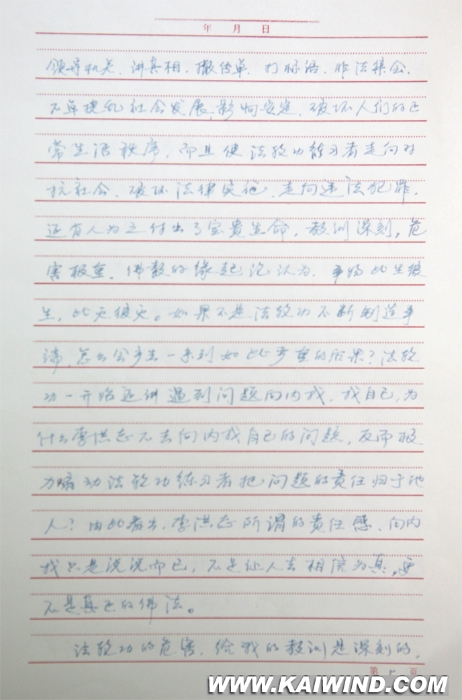 年 月 日
领导机关、讲真相、撒传单、打标语、非法集会,
不单扰乱社会发展,影响安定,破坏人们的正
常生活秩序,而且使法轮功练习者走向对
抗社会、破坏法律实施、走向违法犯罪,
还有人为之付出了宝贵生命,教训深刻,危
害极重,佛教的缘起论认为,事物此生彼
生,此灭彼灭。如果不是法轮功不断制造事
端,怎么会产生一系列如此严重的后果?法轮
功一开始还讲遇到问题向内找,找自己,为
什么李洪志不去向内找自己的问题,反而极
力煽动法轮功练习者把问题的责任归于他
人?由此看出,李洪志所谓的责任感,向内
找只是说说而已,不是让人去相信为真,更
不是真正的佛法。
法轮功的危害,给我的教训是深刻的,
第 页
WWW.KAIWIND.COM